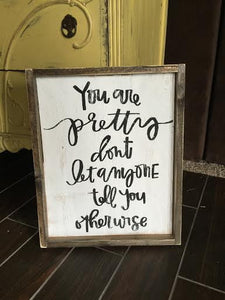 You are
pretty
dont
let anyone
tell you
otherwise